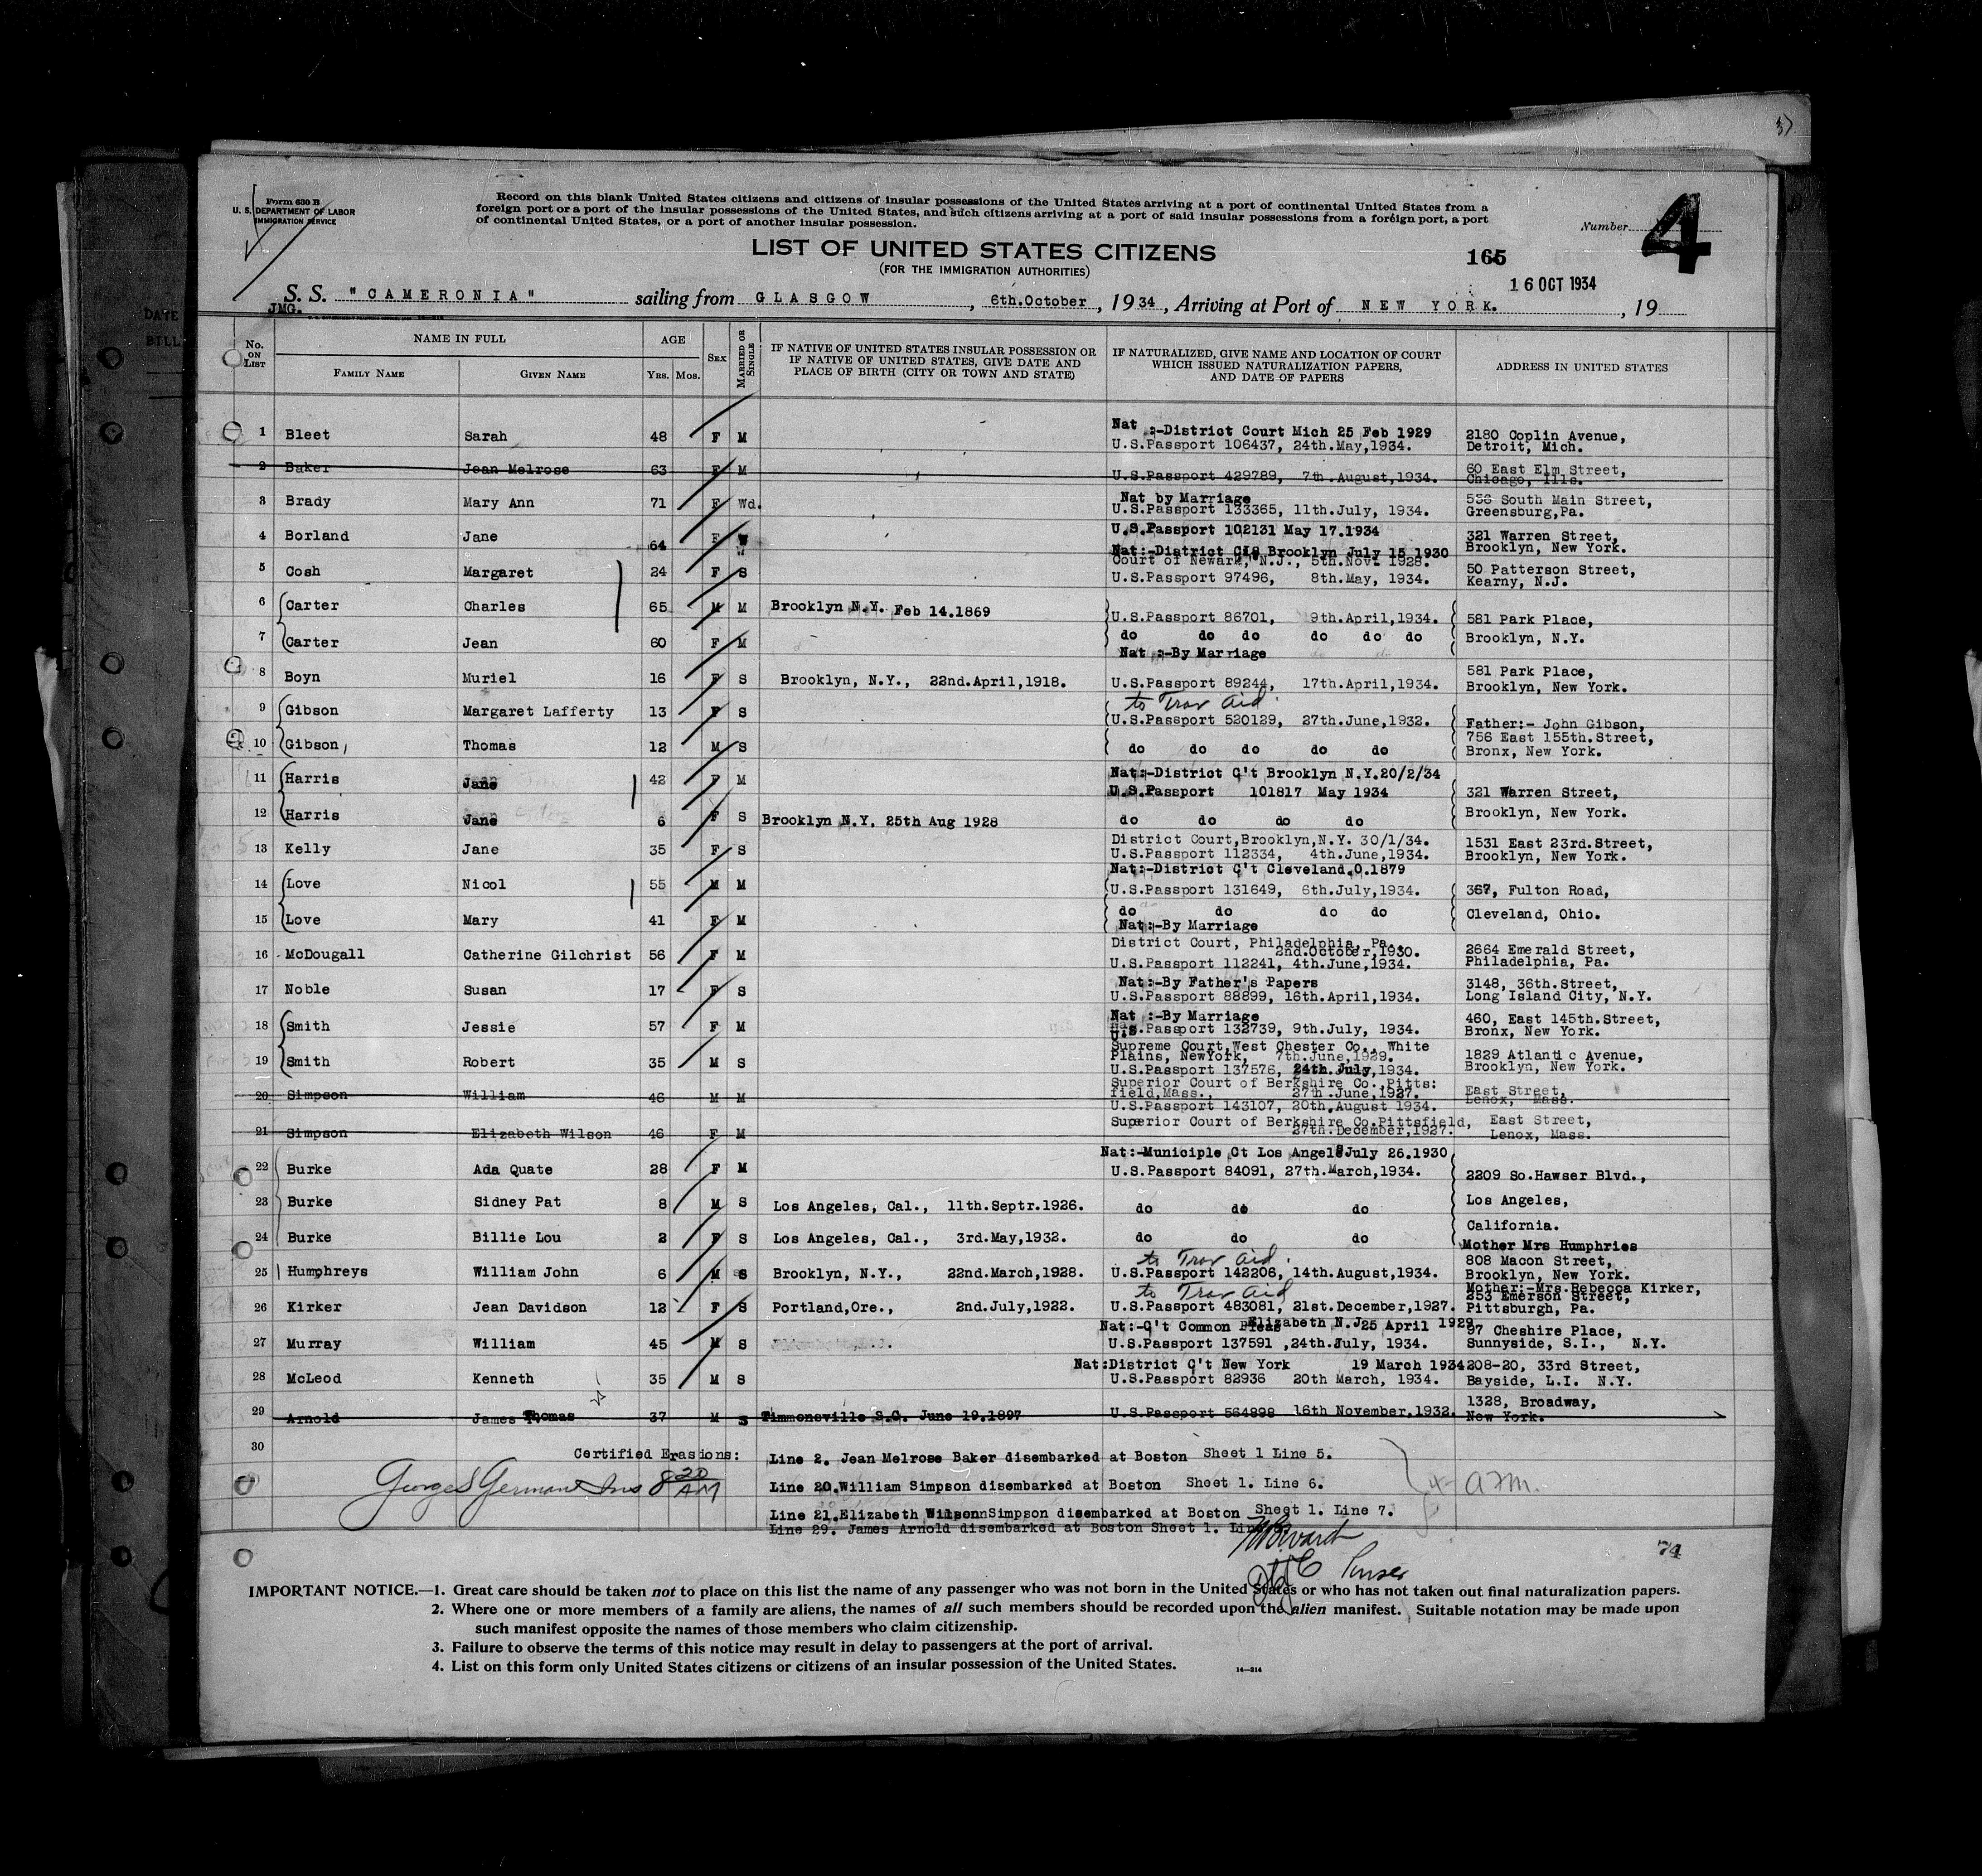 Form 630 B
U. S. DEPARTMENT OF LABOR
IMMIGRATION SERVICE
Record on this blank United States citizens and citizens of insular possessions of the United States arriving at a port of continental United States from a
foreign port or a port of the insular possessions of the United States, and such citizens arriving at a port of said insular possessions from a foreign port, a port
of continental United States, or a port of another insular possession.
Number 4
LIST OF UNITED STATES CITIZENS
(FOR THE IMMIGRATION AUTHORITIES)
165
16 OCT 1934
S. S. "CAMERONIA" sailing from GLASGOW, 6th.October, 1934, Arriving at Port of NEW YORK., 19
JMG.
No. ON LIST
NAME IN FULL
FAMILY NAME
GIVEN NAME
AGE
YRS. MOS.
SEX
MARRIED OR SINGLE
IF NATIVE OF UNITED STATES INSULAR POSSESSION OR
IF NATIVE OF UNITED STATES, GIVE DATE AND
PLACE OF BIRTH (CITY OR TOWN AND STATE)
IF NATURALIZED, GIVE NAME AND LOCATION OF COURT
WHICH ISSUED NATURALIZATION PAPERS,
AND DATE OF PAPERS
ADDRESS IN UNITED STATES
Nat :-District Court Mich 25 Feb 1929
1 Bleet Sarah 48 F M U.S.Passport 106437, 24th.May,1934. 2180 Coplin Avenue,
Detroit, Mich.
2 Baker Jean Melrose 63 F M U.S.Passport 429789, 7th.August,1934. 60 East Elm Street,
Chicago, Ills.
Nat by Marriage
3 Brady Mary Ann 71 F Wd. U.S.Passport 133365, 11th.July, 1934. South Main Street,
Greensburg,Pa.
U.S.Passport 102131 May 17.1934
4 Borland Jane 64 F W 321 Warren Street,
Brooklyn, New York.
Nat:-District Brooklyn July 15 1930
Court of Newark, N.J., 5th.Nov. 1928.
5 Cosh Margaret 24 F S U.S.Passport 97496, 8th.May, 1934. 50 Patterson Street,
Kearny, N.J.
6 Carter Charles 65 M M Brooklyn N.Y. Feb 14.1869 U.S.Passport 86701, 9th.April,1934. 581 Park Place,
7 Carter Jean 60 F M do do do do do do Brooklyn, N.Y.
Nat :-By Marriage
8 Boyn Muriel 16 F S Brooklyn, N.Y., 22nd.April,1918. U.S.Passport 89244, 17th.April,1934. 581 Park Place,
Brooklyn, New York.
to Trav Aid
9 Gibson Margaret Lafferty 13 F S U.S.Passport 520129, 27th.June,1932. Father:- John Gibson,
756 East 155th.Street,
10 Gibson Thomas 12 M S do do do do do Bronx, New York.
Nat:-District C't Brooklyn N.Y.20/2/34
11 Harris Jane 42 F M U.S.Passport 101817 May 1934 321 Warren Street,
12 Harris Jane 6 F S Brooklyn N.Y. 25th Aug 1928 do do do do Brooklyn, New York.
District Court,Brooklyn,N.Y. 30/1/34.
13 Kelly Jane 35 F S U.S.Passport 112334, 4th.June,1934. 1531 East 23rd.Street,
Brooklyn, New York.
Nat:-District C't Cleveland.O.1879
14 Love Nicol 55 M M U.S.Passport 131649, 6th.July,1934. 367, Fulton Road,
15 Love Mary 41 F M do do do do Cleveland, Ohio.
Nat:-By Marriage
District Court, Philadelphia, Pa.,
2nd.October,1930.
16 McDougall Catherine Gilchrist 56 F M U.S.Passport 112241, 4th.June,1934. 2664 Emerald Street,
Philadelphia, Pa.
Nat:-By Father's Papers
17 Noble Susan 17 F S U.S.Passport 88899, 16th.April,1934. 3148, 36th.Street,
Long Island City, N.Y.
Nat :-By Marriage
18 Smith Jessie 57 F M U.S.Passport 132739, 9th.July, 1934. 460, East 145th.Street,
Bronx, New York.
Supreme Court,West Chester Co., White
Plains, NewYork, 7th.June,1929.
19 Smith Robert 35 M S U.S.Passport 137576, 24th.July,1934. 1829 Atlantic Avenue,
Brooklyn, New York.
Superior Court of Berkshire Co.,Pitts:
field,Mass., 27th.June,1927.
20 Simpson William 46 M M U.S.Passport 143107, 20th.August 1934. East Street,
Lenox, Mass.
21 Simpson Elizabeth Wilson 46 F M Superior Court of Berkshire Co.Pittsfield, East Street,
27th.December,1927. Lenox, Mass.
Nat:-Municiple Ct Los Angels July 26.1930
22 Burke Ada Quate 28 F M U.S.Passport 84091, 27th.March,1934. 2209 So.Hawser Blvd.,
23 Burke Sidney Pat 8 M S Los Angeles, Cal., 11th.Septr.1926. do do do Los Angeles,
California.
24 Burke Billie Lou 2 F S Los Angeles, Cal., 3rd.May,1932. do do do
Mother Mrs Humphries
to Trav Aid.
25 Humphreys William John 6 M S Brooklyn, N.Y., 22nd.March,1928. U.S.Passport 142206, 14th.August,1934. 808 Macon Street,
Brooklyn, New York.
to Trav Aid
Mother:-Mrs.Rebecca Kirker,
26 Kirker Jean Davidson 12 F S Portland,Ore., 2nd.July,1922. U.S.Passport 483081, 21st.December,1927. 253 Emerson Street,
Pittsburgh, Pa.
Nat:-C't Common Pleas Elizabeth N.J 25 April 1929
27 Murray William 45 M S U.S.Passport 137591 ,24th.July, 1934. 97 Cheshire Place,
Sunnyside, S.I., N.Y.
Nat:District C't New York 19 March 1934
28 McLeod Kenneth 35 M S U.S.Passport 82936 20th March, 1934. 208-20, 33rd Street,
Bayside, L.I. N.Y.
29 Arnold James Thomas 37 M S Timmonsville S.C. June 19.1897 U.S.Passport 564898 16th November,1932. 1328, Broadway,
New York.
30
Certified Erasions:
Line 2. Jean Melrose Baker disembarked at Boston Sheet 1 Line 5.
8 20 AM
Line 20.William Simpson disembarked at Boston Sheet 1. Line 6.
Line 21.Elizabeth Simpson disembarked at Boston Sheet 1. Line 7.
Line 29. James Arnold disembarked at Boston Sheet 1.
Purser
74
IMPORTANT NOTICE.—1. Great care should be taken not to place on this list the name of any passenger who was not born in the United States or who has not taken out final naturalization papers.
2. Where one or more members of a family are aliens, the names of all such members should be recorded upon the alien manifest. Suitable notation may be made upon
such manifest opposite the names of those members who claim citizenship.
3. Failure to observe the terms of this notice may result in delay to passengers at the port of arrival.
4. List on this form only United States citizens or citizens of an insular possession of the United States.
14—214